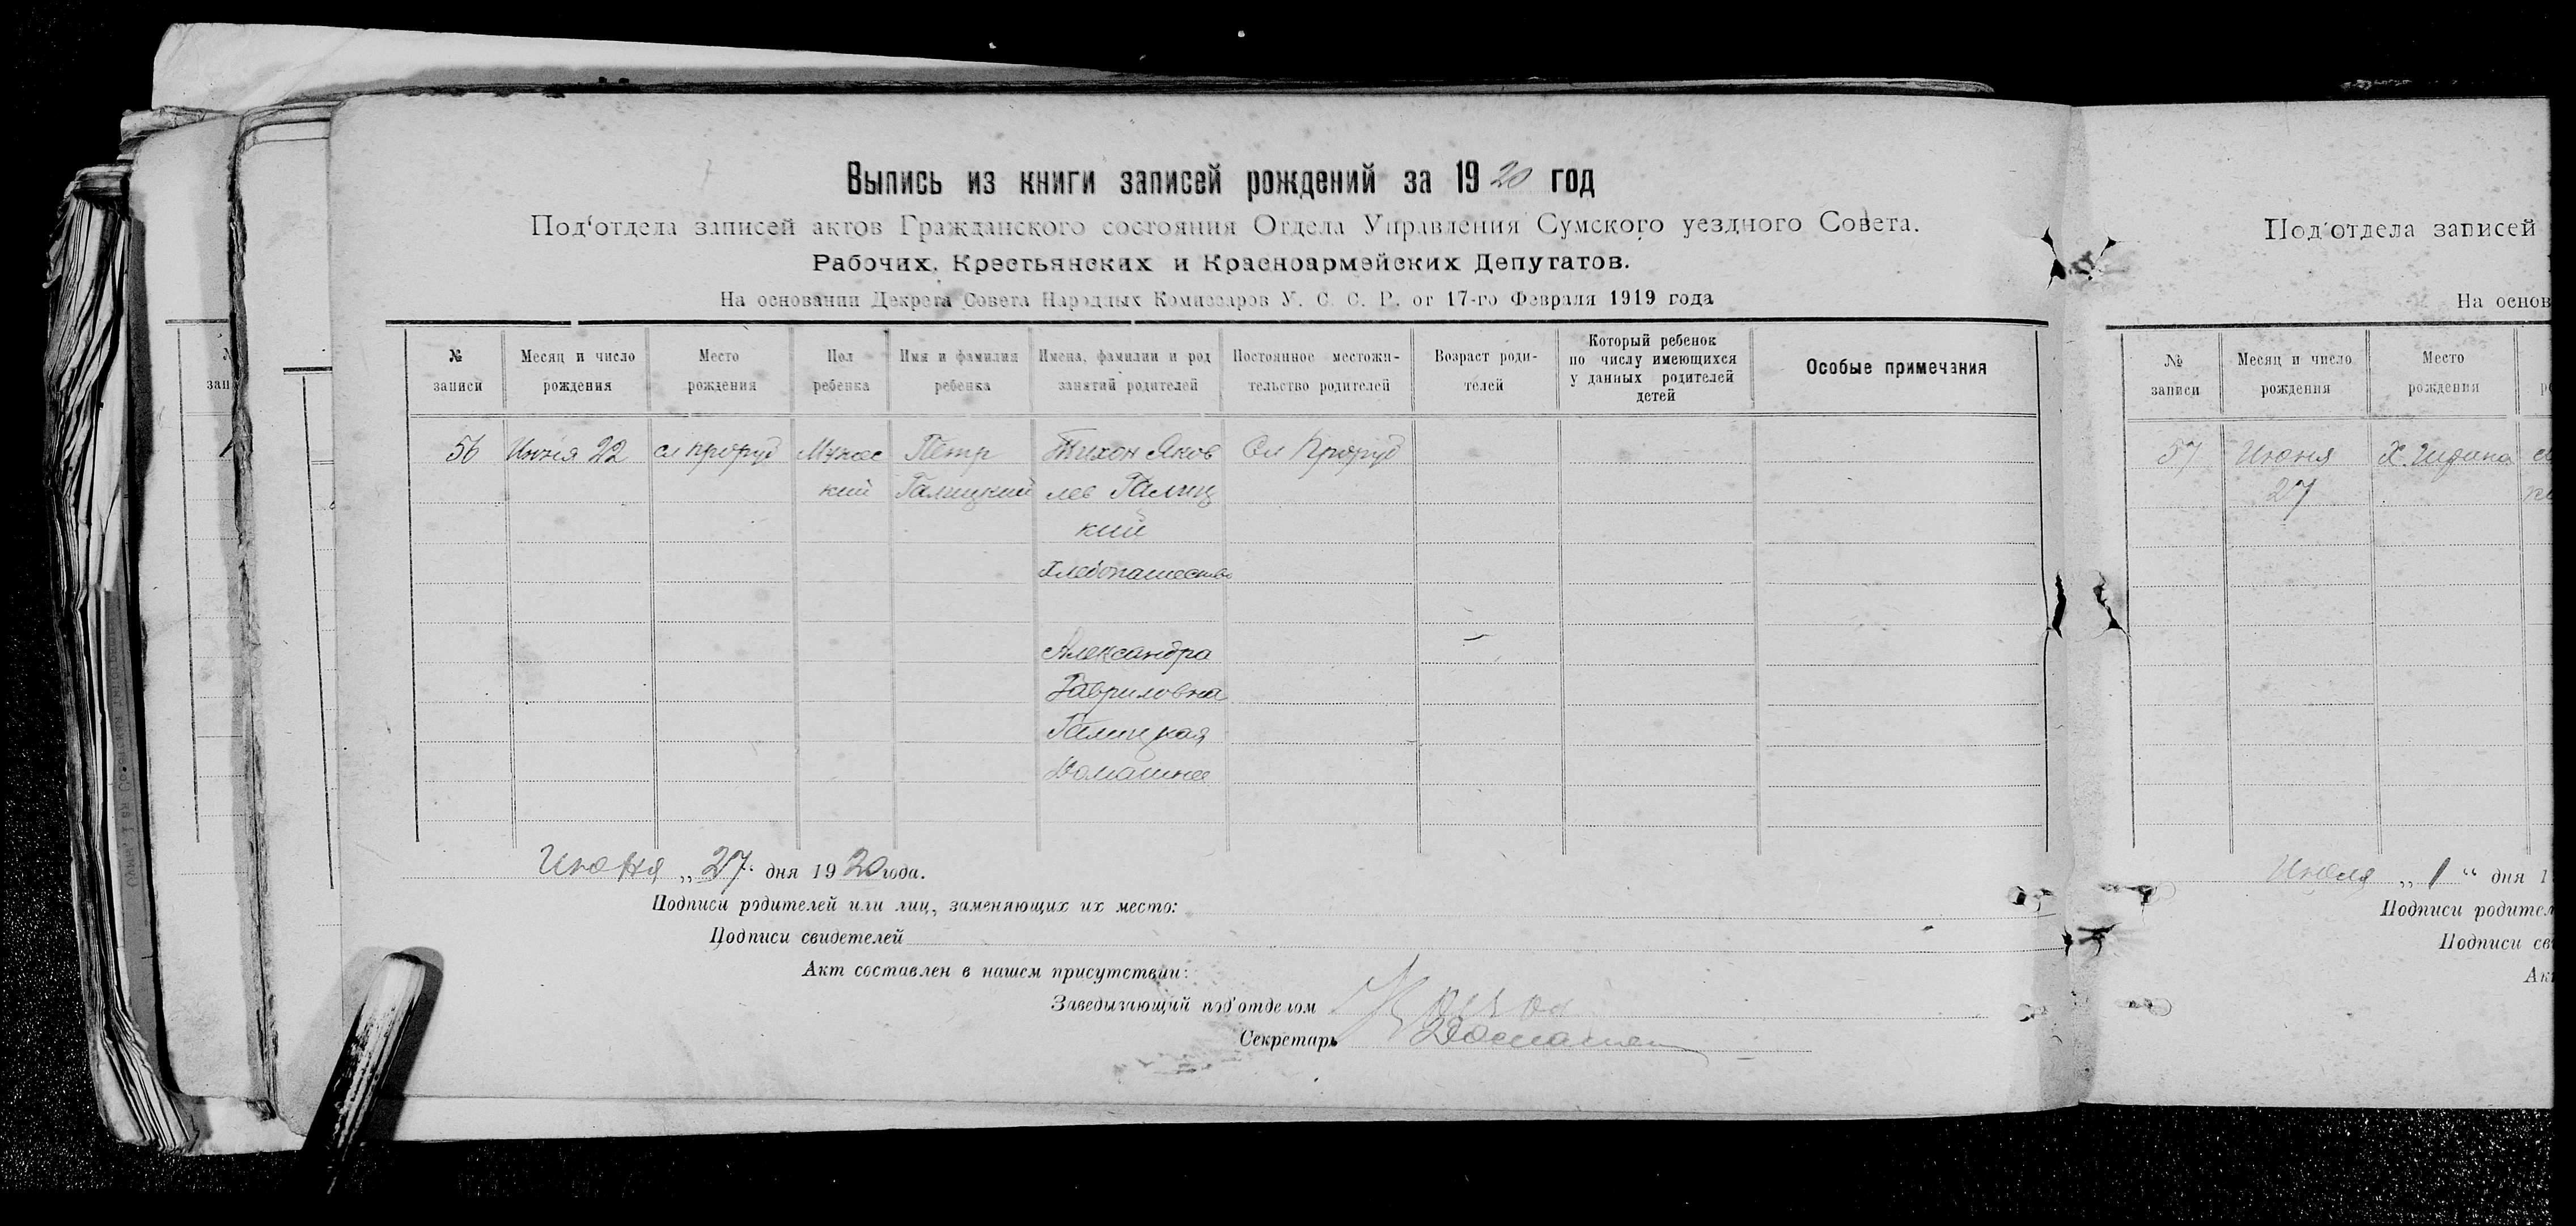 Выпись из книги записей рождений за 1920 год
Под'отдела записей актов Гражданского состояния Отдела Управления Сумского уездного Совета.
Рабочих, Крестьянских и Красноармейских Депутатов.
На основании Декрета Совета Народных Комиссаров У. С. С. Р. от 17-го Февраля 1919 года
№ записи
Месяц и число рождения
Место рождения
Пол ребенка
Имя и фамилия ребенка
Имена, фамилии и род занятий родителей
Постоянное местожи-тельство родителей
Возраст роди-телей
Который ребенок по числу имеющихся у данных родителей детей
Особые примечания
56 Июня 22 сл Проруб Мужес Петр Тихон Яков Сл Проруб
кий Галицкий лев Галиц
кий
Хлебопашество
Александра
Гавриловна
Галицкая
Домашнее
Июня „27" дня 1920 года.
Подписи родителей или лиц, заменяющих их место:
Подписи свидетелей
Акт составлен в нашем присутствии:
Заведывающий под'отделом
Секретарь
Под'отдела записей
На основ
№ записи
Месяц и число рождения
Место рождения
57 Июня Х.
27
Июля „1" дня 1
Подписи родител
Подписи св
Ак